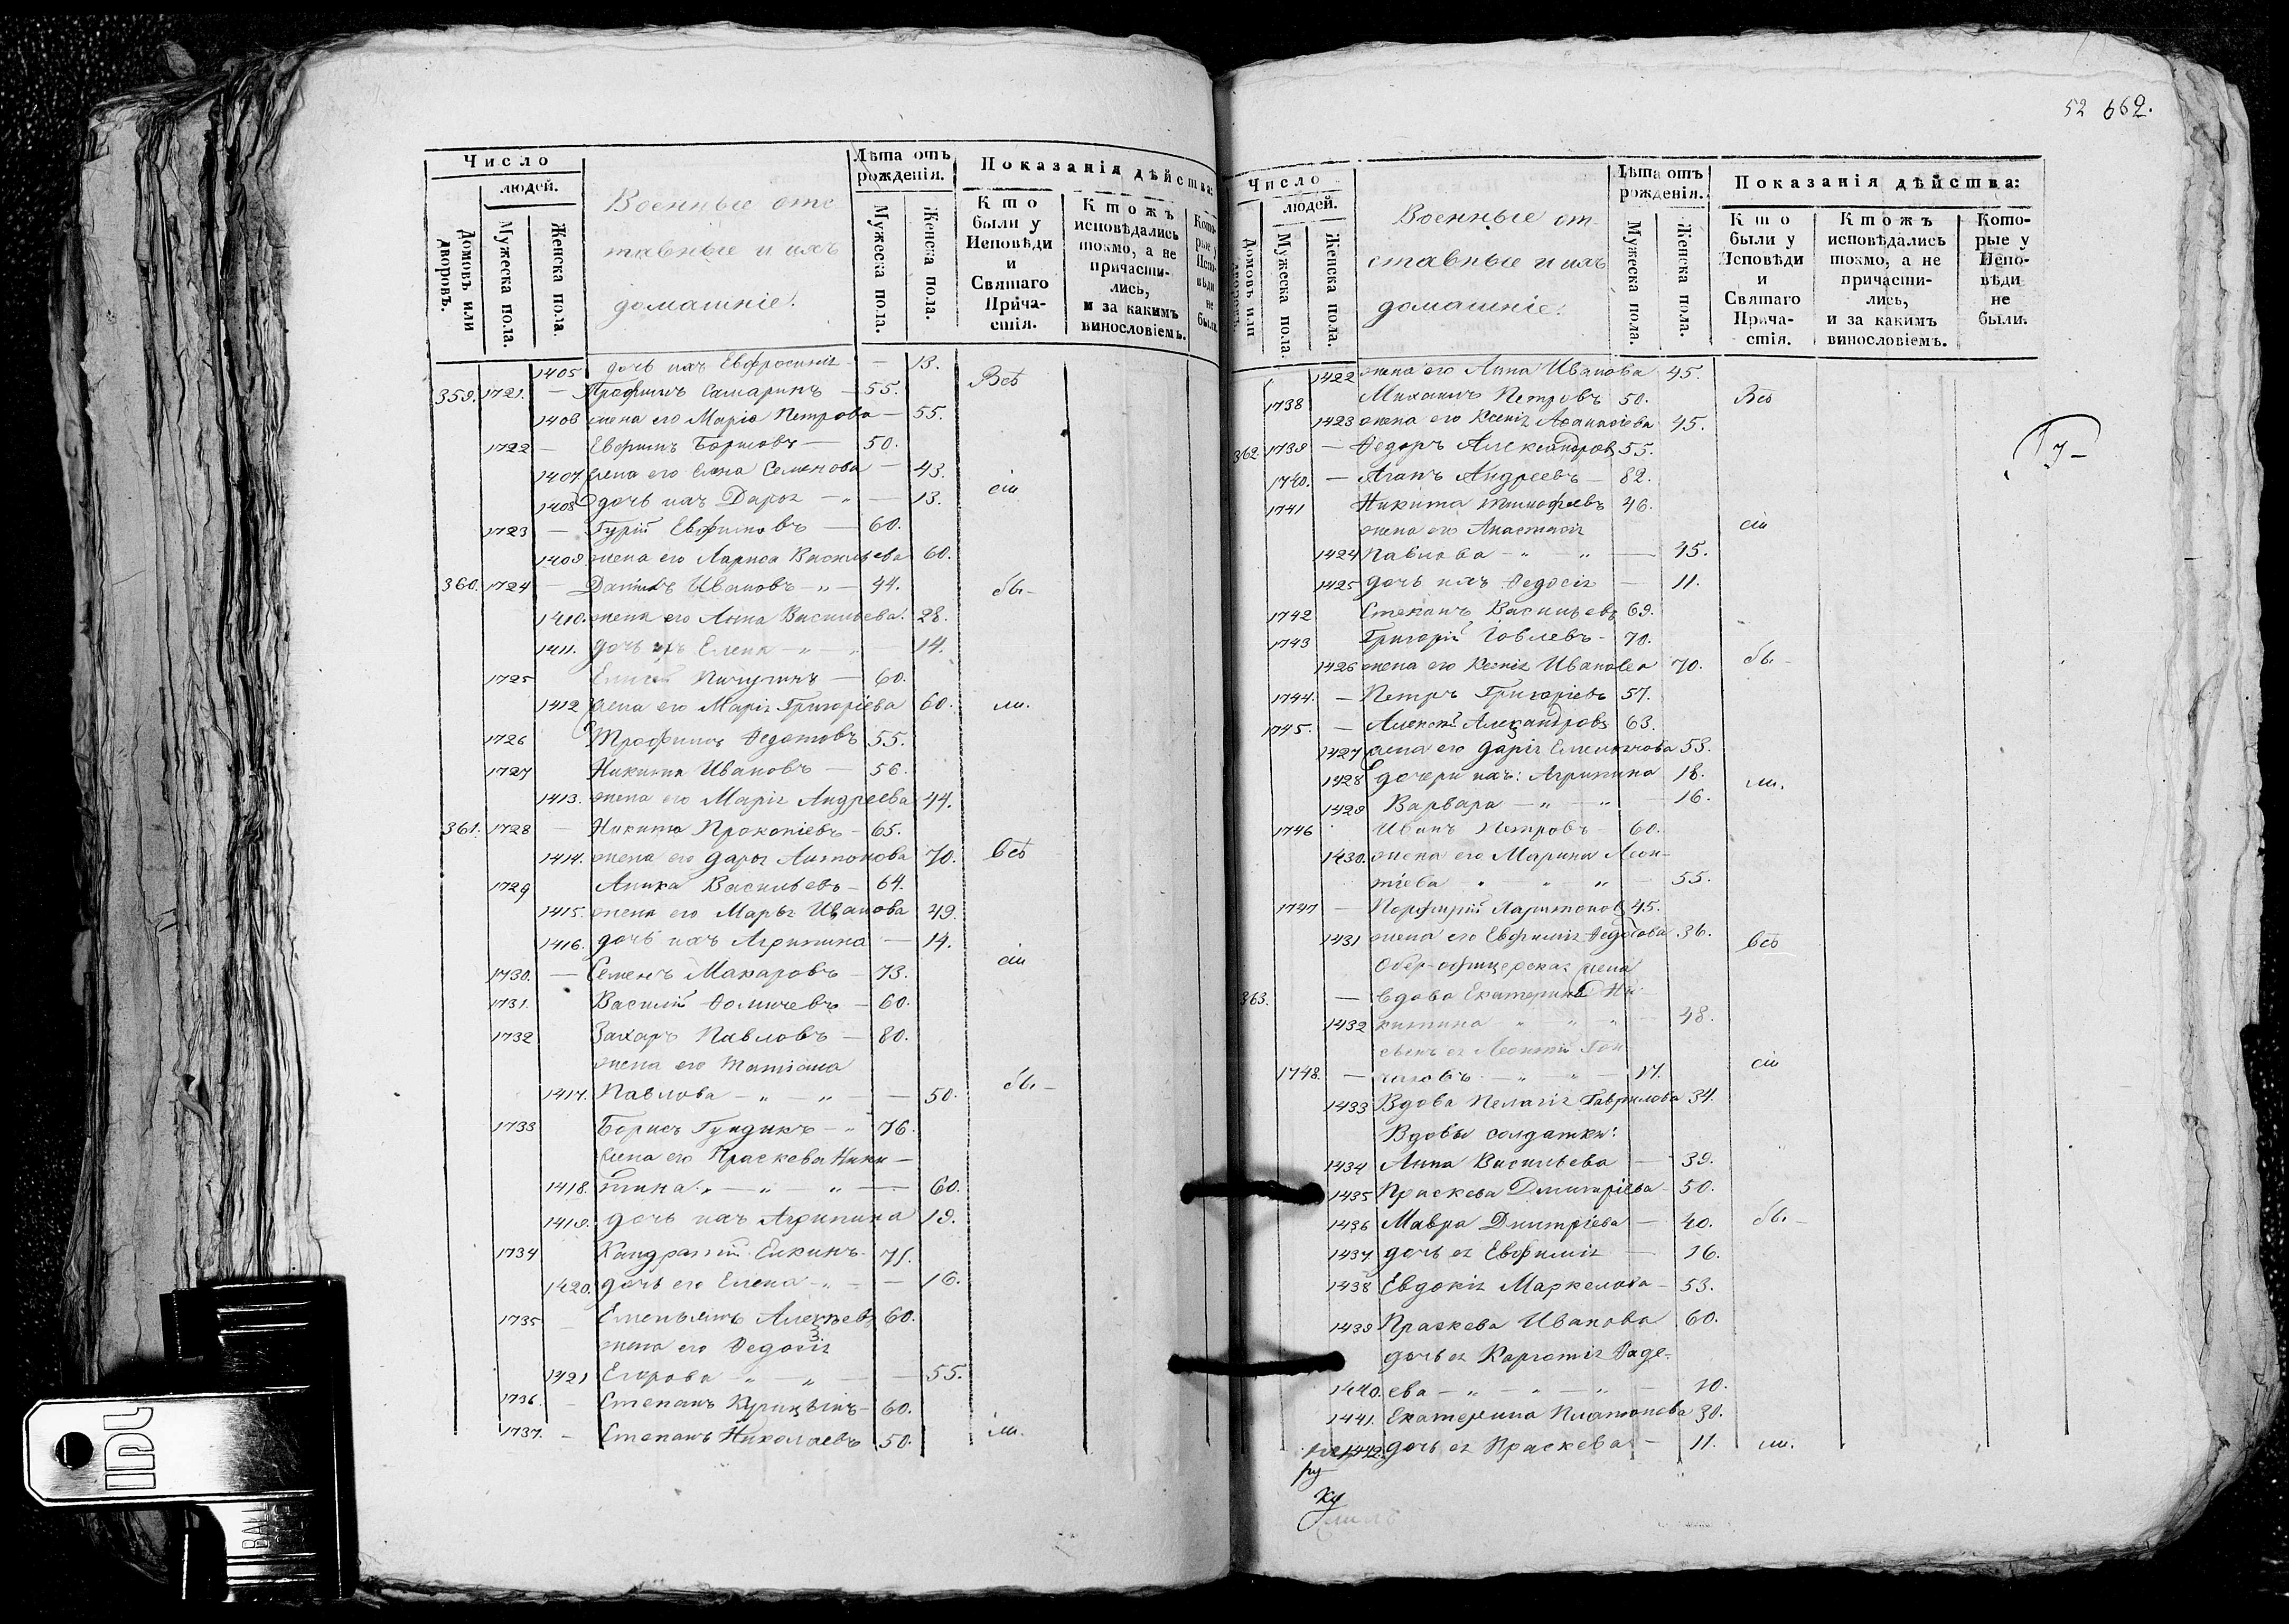 52 662.
Число
людей.
Домовъ или дворовъ.
Мужеска пола.
Женска пола.
Военные отс
тавные и ихъ
домашніе:
Лѣта отъ рожденія.
Мужеска пола.
Женска пола.
Показанія дѣйства:
Кто были у Исповѣди и Святаго Прича-стія.
Ктожъ исповѣдались токмо, а не причасти-лись, и за какимъ винословіемъ.
Кото-рые у Испо-вѣди не были.
1405 дочь ихъ Евфросинія — 13.
359. 1721. — Трофимъ Самаринъ — 55. Всѣ
1406 жена его Марія Петрова — 55.
1722 — Евфимъ Борисовъ — 50.
1407 жена его Елена Семенова — 43.
1408 дочь ихъ Дарья — „ — 13. сіи
1723 — Гурій Евфимовъ — 60.
1409. жена его Лариса Васильева 60.
360. 1724 — Данилъ Ивановъ — „ — 44. бы-
1410. жена его Анна Васильева. 28.
1411. дочь ихъ Елена — „ — „ — 14.
1725 Пичугинъ — 60.
1412 жена его Марія Григоріева 60. ли.
1726 Трофимъ Федотовъ 55.
1727 Никита Ивановъ — 56.
1413. жена его Марія Андреева 44.
361. 1728 — Никита Прокопіевъ — 65.
1414. жена его Дарья Антонова 70. всѣ
1729 Аника Васильевъ — 64.
1415. жена его Марья Иванова 49.
1416. дочь ихъ Агрипина — 14.
1730. — Семенъ Макаровъ — 73. сіи
1731. Василій Фомичевъ — 60.
1732 Захаръ Павловъ — 80.
жена его Татіана
1417. Павлова — „ — „ — — 50. бы-
1733 Борисъ Гундикъ — „ 76.
жена его Праскева Ники—
1418. тина „ — „ — „ — 60.
1419. дочь ихъ Агрипина 19.
1734 Кандратій Елкинъ 71.
1420. дочь его Елена — „ — — 16.
1735 Емельянъ Алексѣевъ 60.
жена его Федосія
1421 Егорова „ — „ — 55.
1736. Степанъ Курицынъ — 60.
1737. — Степанъ Николаевъ 50. ли.
Число
людей.
Домовъ или дворовъ.
Мужеска пола.
Женска пола.
Военные от-
ставные и ихъ
домашніе:
Лѣта отъ рожденія.
Мужеска пола.
Женска пола.
Показанія дѣйства:
Кто были у Исповѣди и Святаго Прича-стія.
Ктожъ исповѣдались токмо, а не причасти-лись, и за какимъ винословіемъ.
Кото-рые у Испо-вѣди не были.
1422 жена его Анна Иванова 45.
1738 Михаилъ Петровъ 50. Всѣ
1423 жена его Ксенія Афанасіева 45.
362. 1739 — Федоръ Александровъ 55.
1740. — Агапъ Андреевъ — 82.
1741 Никита Тимофеевъ 46.
жена его Анастасія сіи
1424 Павлова — „ — „ — 45.
1425 дочь ихъ Федосія — 11.
1742 Степанъ Васильевъ 69.
1743 Григорій Іовлевъ — 70.
1426 жена его Ксенія Иванова 70. бы-
1744. — Петръ Григоріевъ 57.
1745. — Алексѣй Александровъ 63.
1427 жена его Дарія Емельянова 53.
1428 дочери ихъ: Агрипина 18. ли.
1429 Варвара — „ — „ — 16.
1746 Иванъ Петровъ — 60.
1430. жена его Марина Леон-
тіева „ „ „ — 55.
1747 — Порфирій Харитоновъ 45.
1431 жена его Евфимія Федосова 36. всѣ
Обер-офицерская жена
363. — вдова Екатерина Ни-
1432 китина „ „ „ — 48.
сынъ ея Леонтій Гон-
1748. — чаровъ — „ — „ — 17. сіи
1433 Вдова Пелагія Гаврилова 34.
Вдовы солдатки:
1434 Анна Васильева — 39.
1435 Праскева Дмитріева — 50.
1436 Мавра Дмитріева — 40. бы-
1437 дочь ея Евфимія — 16.
1438 Евдокія Маркелова — 53.
1439 Праскева Иванова 60.
дочь ея Фаде-
1440. ева — „ — „ — „ — 10.
1441. Екатерина Платонова 30.
1442. дочь ея Праскева — 11. ли.
ру
ку